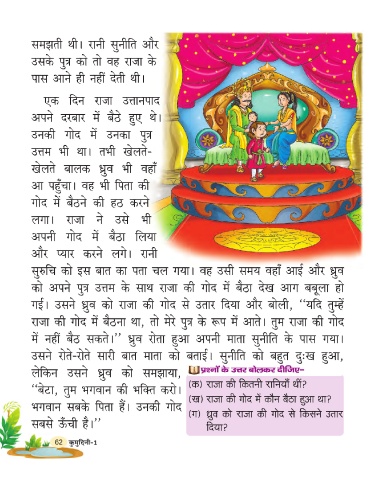 समझती थी। रानी सुनीति और
उसके पुत्र को तो वह राजा के
पास आने ही नहीं देती थी।
एक दिन राजा उत्तानपाद
अपने दरबार में बैठे हुए थे।
उनकी गोद में उनका पुत्र
उत्तम भी था। तभी खेलते-
खेलते बालक ध्रुव भी वहाँ
आ पहुँचा। वह भी पिता की
गोद में बैठने की हठ करने
लगा। राजा ने उसे भी
अपनी गोद में बैठा लिया
और प्यार करने लगे। रानी
सुरुचि को इस बात का पता चल गया। वह उसी समय वहाँ आई और ध्रुव
को अपने पुत्र उत्तम के साथ राजा की गोद में बैठा देख आग बबूला हो
गई। उसने ध्रुव को राजा की गोद से उतार दिया और बोली, ‘‘यदि तुम्हें
राजा की गोद में बैठना था, तो मेरे पुत्र के रूप में आते। तुम राजा की गोद
में नहीं बैठ सकते।’’ ध्रुव रोता हुआ अपनी माता सुनीति के पास गया।
उसने रोते-रोते सारी बात माता को बताई। सुनीति को बहुत दुःख हुआ,
लेकिन उसने ध्रुव को समझाया,
‘‘बेटा, तुम भगवान की भक्ति करो।
भगवान सबके पिता हैं। उनकी गोद
सबसे ऊँची है।’’
प्रश्नों के उत्तर बोलकर दीजिए-
(क) राजा की कितनी रानियाँ थीं?
(ख) राजा की गोद में कौन बैठा हुआ था?
(ग) ध्रुव को राजा की गोद से किसने उतार
दिया?
62 कुमुदिनी-1